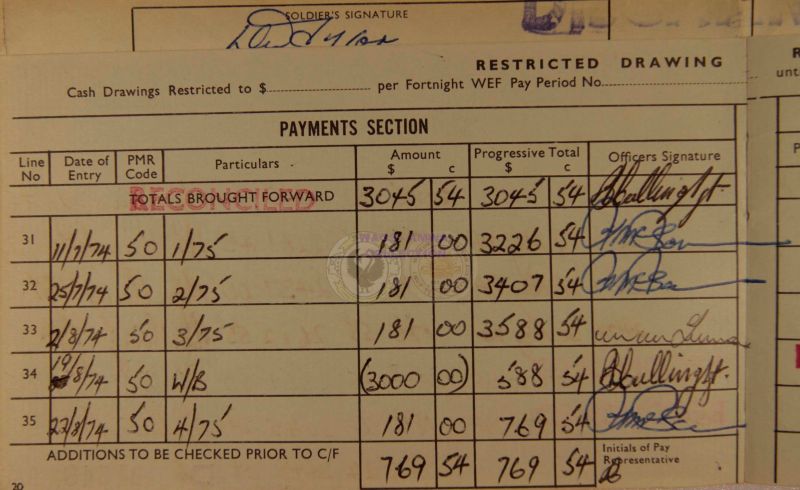 SOLDIER'S SIGNATURE
RESTRICTED DRAWING
Cash Drawings Restricted to $ per Fortnight WEF Pay Period No.
PAYMENTS SECTION
Line No Date of Entry PMR Code Particulars Amount $ c Progressive Total $ c Officers Signature
RECONCILED
TOTALS BROUGHT FORWARD 3045 54 3045 54
31 11/7/74 50 1/75 181 00 3226 54
32 25/7/74 50 2/75 181 00 3407 54
33 2/8/74 50 3/75 181 00 3588 54
34 19/8/74 50 W/B (3000 00) 588 54
35 22/8/74 50 4/75 181 00 769 54
ADDITIONS TO BE CHECKED PRIOR TO C/F 769 54 769 54 Initials of Pay Representative
20